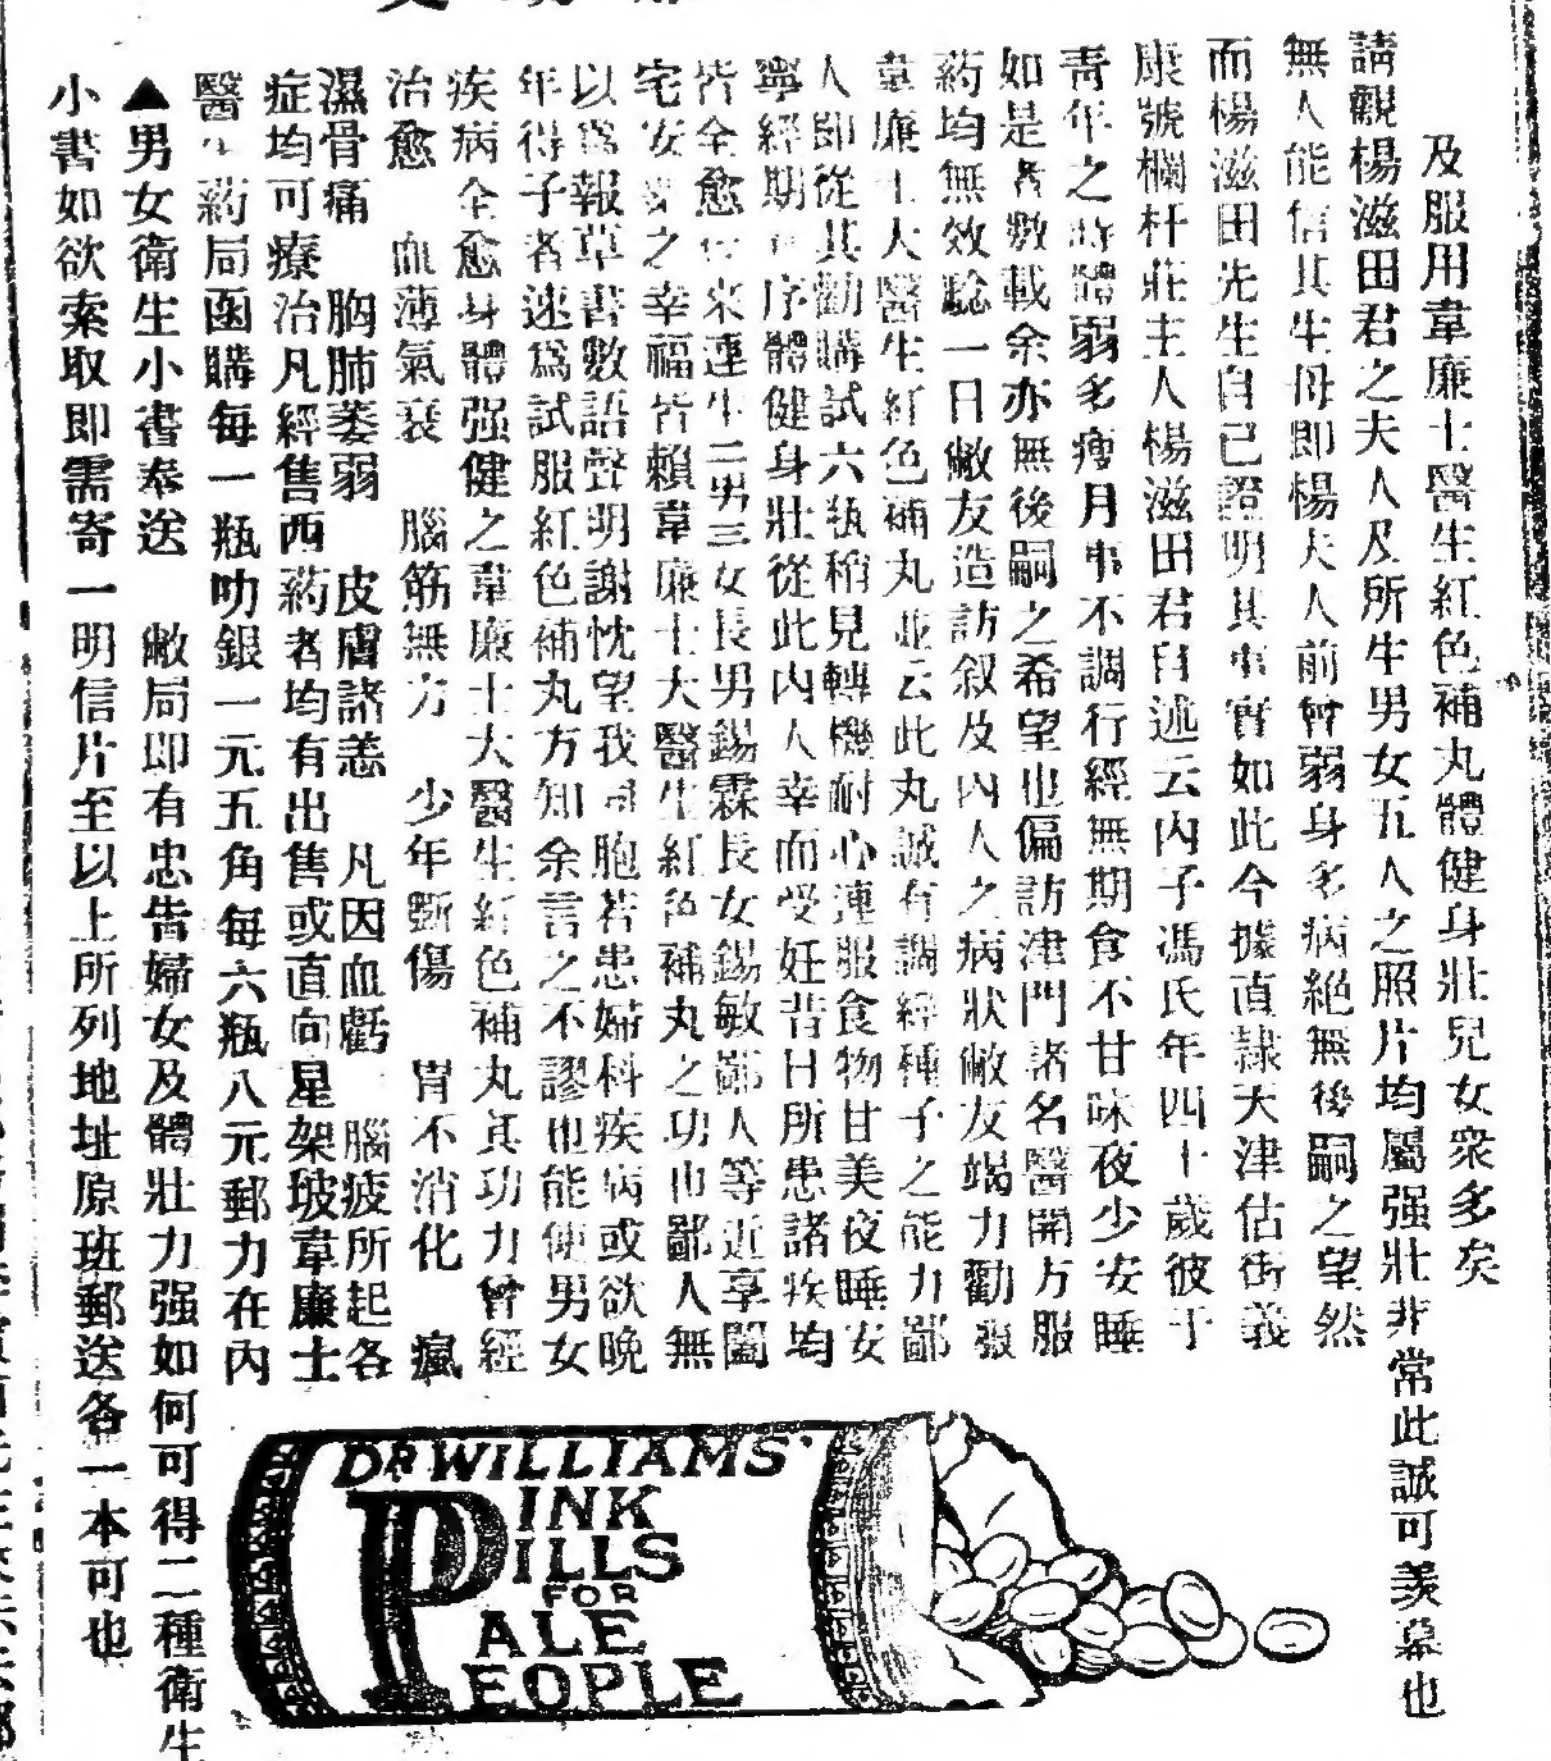 及服用韋廉士醫生紅色補丸體健身壯兒女衆多矣
請觀楊滋田君之夫人及所生男女五人之照片均屬强壯非常此誠可羨慕也
無人能信其生母即楊夫人前曾弱身多病絕無後嗣之望然
而楊滋田先生自己證明其事實如此今據直隸天津估衣街義
康號欄杆莊主人楊滋田君自述云內子馮氏年四十歲彼于
青年之時體弱多瘦月事不調行經無期食不甘味夜少安睡
如是者數載余亦無後嗣之希望也偏訪津門諸名醫開方服
葯均無效驗一日敝友造訪叙及內人之病狀敝友竭力勸服
韋廉士大醫生紅色補丸並云此丸誠有調經種子之能力鄙
人即從其勸購試六瓶稍見轉機耐心連服食物甘美夜睡安
寧經期有序體健身壯從此內人幸而受妊昔日所患諸疾均
皆全愈 來連生二男三女長男錫霖長女錫敏鄙人等近享闔
宅安樂之幸福皆賴韋廉士大醫生紅色補丸之功也鄙人無
以爲報草書數語聲明謝忱望我同胞若患婦科疾病或欲晚
年得子者速爲試服紅色補丸方知余言之不謬也能使男女
疾病全愈身體强健之韋廉士大醫生紅色補丸其功力曾經
治愈 血薄氣衰 腦筋無力 少年斲傷 胃不消化 瘋
濕骨痛 胸肺萎弱 皮膚諸恙 凡因血虧 腦疲所起各
症均可療治凡經售西葯者均有出售或直向星架玻韋廉士
醫生葯局函購每一瓶叻銀一元五角每六瓶八元郵力在內
▲男女衛生小書奉送 敝局即有忠告婦女及體壯力强如何可得二種衛生
小書如欲索取即需寄一明信片至以上所列地址原班郵送各一本可也
DR WILLIAMS'
PINK
PILLS
FOR
PALE
PEOPLE